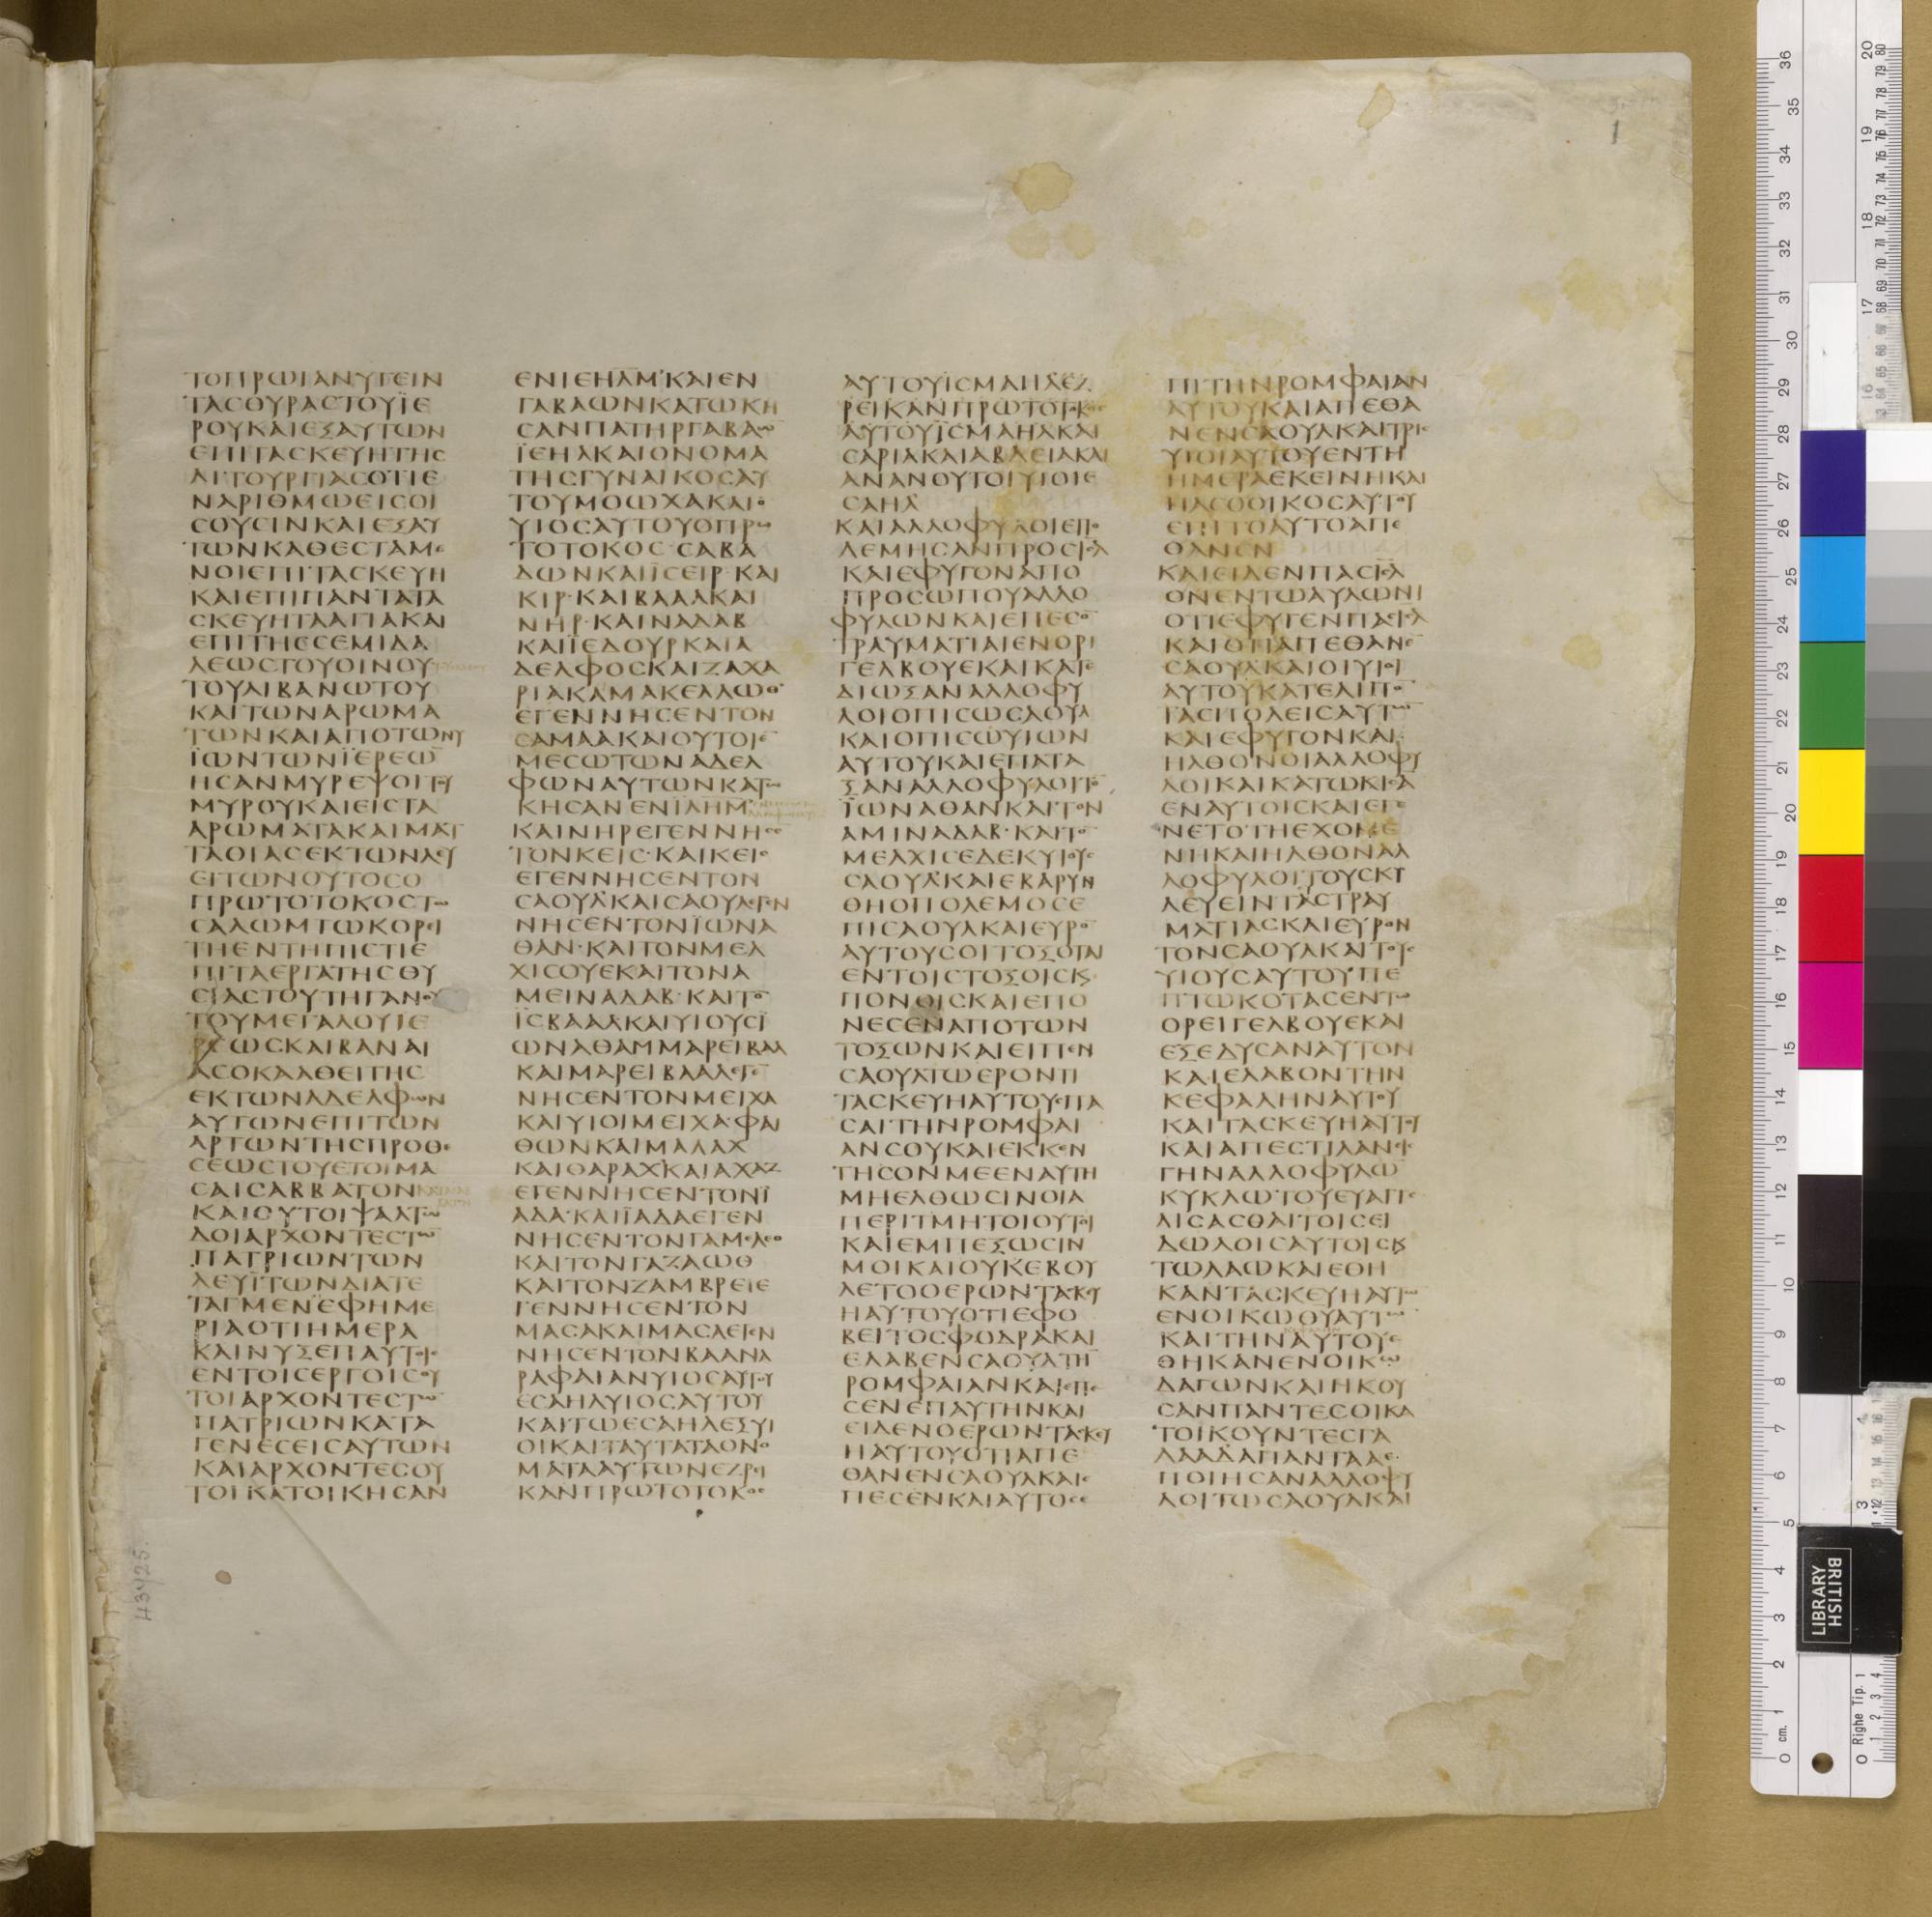 ΤΟΠΡΩΙΑΝΥΓΕΙΝ
ΤΑΣΟΥΡΑΣΤΟΥΪΕ
ΡΟΥΚΑΙΕΞΑΥΤΩΝ
ΕΠΙΤΑΣΚΕΥΗΤΗΣ
ΛΙΤΟΥΡΓΙΑΣΟΤΙΕ
ΝΑΡΙΘΜΩΕΙΣΟΙ
ΣΟΥΣΙΝΚΑΙΕΞΑΥ
ΤΩΝΚΑΘΕΣΤΑΜΕ
ΝΟΙΕΠΙΤΑΣΚΕΥΗ
ΚΑΙΕΠΙΠΑΝΤΑΤΑ
ΣΚΕΥΗΤΑΑΓΙΑΚΑΙ
ΕΠΙΤΗΣΣΕΜΙΔΑ
ΛΕΩΣΤΟΥΟΙΝΟΥ
ΤΟΥΛΙΒΑΝΩΤΟΥ
ΚΑΙΤΩΝΑΡΩΜΑ
ΤΩΝΚΑΙΑΠΟΤΩΝΥ
ΪΩΝΤΩΝΪΕΡΕΩ̄
ΗΣΑΝΜΥΡΕΨΟΙΤΟΥ
ΜΥΡΟΥΚΑΙΕΙΣΤΑ
ΑΡΩΜΑΤΑΚΑΙΜΑΤ
ΤΑΘΙΑΣΕΚΤΩΝΛΕΥ
ΕΙΤΩΝΟΥΤΟΣΟ
ΠΡΩΤΟΤΟΚΟΣΤΩ
ΣΑΛΩΜΤΩΚΟΡΕΙ
ΤΗΕΝΤΗΠΙΣΤΙΕ
ΠΙΤΑΕΡΓΑΤΗΣΘΥ
ΣΙΑΣΤΟΥΤΗΓΑΝΟΥ
ΤΟΥΜΕΓΑΛΟΥΙΕ
ΡΕΩΣΚΑΙΒΑΝΑΙ
ΑΣΟΚΑΑΘΕΙΤΗΣ
ΕΚΤΩΝΑΔΕΛΦΩΝ
ΑΥΤΩΝΕΠΙΤΩΝ
ΑΡΤΩΝΤΗΣΠΡΟΘΕ
ΣΕΩΣΤΟΥΕΤΟΙΜΑ
ΣΑΙΣΑΒΒΑΤΟΝ
ΚΑΙΟΥΤΟΙΨΑΛΤΩ
ΔΟΙΑΡΧΟΝΤΕΣΤΩ̄
ΠΑΤΡΙΩΝΤΩΝ
ΛΕΥΪΤΩΝΔΙΑΤΕ
ΤΑΓΜΕΝΕΦΗΜΕ
ΡΙΑΟΤΙΗΜΕΡΑ
ΚΑΙΝΥΞΕΠΑΥΤΟΙΣ
ΕΝΤΟΙΣΕΡΓΟΙΣΟΥ
ΤΟΙΑΡΧΟΝΤΕΣΤΩ̄
ΠΑΤΡΙΩΝΚΑΤΑ
ΓΕΝΕΣΕΙΣΑΥΤΩΝ
ΚΑΙΑΡΧΟΝΤΕΣΟΥ
ΤΟΙΚΑΤΟΙΚΗΣΑΝ
ΕΝΙΕΗΛΜ̄ΚΑΙΕΝ
ΓΑΒΑΩΝΚΑΤΩΚΗ
ΣΑΝΠΑΤΗΡΓΑΒΑΩ̄
ΪΕΗΛΚΑΙΟΝΟΜΑ
ΤΗΣΓΥΝΑΙΚΟΣΑΥ
ΤΟΥΜΟΩΧΑΚΑΙΟ
ΥΙΟΣΑΥΤΟΥΟΠΡΩ
ΤΟΤΟΚΟΣ·ΣΑΒΑ
ΔΩΝΚΑΙΪΣΕΙΡ·ΚΑΙ
ΚΙΡ·ΚΑΙΒΑΑΛΚΑΙ
ΝΗΡ·ΚΑΙΝΑΔΑΒ
ΚΑΙΪΕΔΟΥΡΚΑΙΑ
ΔΕΛΦΟΣΚΑΙΖΑΧΑ
ΡΙΑΚΑΜΑΚΕΛΛΩΘ
ΕΓΕΝΝΗΣΕΝΤΟΝ
ΣΑΜΑΑΚΑΙΟΥΤΟΙΕ̄
ΜΕΣΩΤΩΝΑΔΕΛ
ΦΩΝΑΥΤΩΝΚΑΤΩ
ΚΗΣΑΝΕΝΪΛΗΜ
ΚΑΙΝΗΡΕΓΕΝΝΗΣΕ
ΤΟΝΚΕΙΣ·ΚΑΙΚΕΙΣ
ΕΓΕΝΝΗΣΕΝΤΟΝ
ΣΑΟΥΛΚΑΙΣΑΟΥΛΕΓΕΝ
ΝΗΣΕΝΤΟΝΪΩΝΑ
ΘΑΝ·ΚΑΙΤΟΝΜΕΛ
ΧΙΣΟΥΕΚΑΙΤΟΝΑ
ΜΕΙΝΑΔΑΒ·ΚΑΙΤΟ̄
ΪΣΒΑΑΛΚΑΙΥΙΟΥΣΪ
ΩΝΑΘΑΜΜΑΡΕΙΒΑΑΛ
ΚΑΙΜΑΡΕΙΒΑΑΛΕΓΕ̄
ΝΗΣΕΝΤΟΝΜΕΙΧΑ
ΚΑΙΥΙΟΙΜΕΙΧΑ·ΦΑΙ
ΘΩΝΚΑΙΜΑΛΑΧ
ΚΑΙΘΑΡΑΧΚΑΙΑΧΑΖ
ΕΓΕΝΝΗΣΕΝΤΟΝΪ
ΑΔΑ·ΚΑΙΪΑΔΑΕΓΕΝ
ΝΗΣΕΝΤΟΝΓΑΜΕΛΕΘ
ΚΑΙΤΟΝΓΑΖΑΩΘ
ΚΑΙΤΟΝΖΑΜΒΡΕΙΕ
ΓΕΝΝΗΣΕΝΤΟΝ
ΜΑΣΑΚΑΙΜΑΣΑΕΓΕΝ
ΝΗΣΕΝΤΟΝΒΑΑΝΑ
ΡΑΦΑΙΑΝΥΙΟΣΑΥΤΟΥ
ΕΣΑΗΛΥΙΟΣΑΥΤΟΥ
ΚΑΙΤΩΕΣΑΗΛΕΞΥΙ
ΟΙΚΑΙΤΑΥΤΑΤΑΟΝΟ
ΜΑΤΑΑΥΤΩΝΕΖΡΕΙ
ΚΑΝΠΡΩΤΟΤΟΚΟΣ
ΑΥΤΟΥΪΣΜΑΗΛΕΖ
ΡΕΙΚΑΝΠΡΩΤΟΤΟΚΟΣ
ΑΥΤΟΥΪΣΜΑΗΛΚΑΙ
ΣΑΡΙΑΚΑΙΑΒΔΕΙΑΚΑΙ
ΑΝΑΝΟΥΤΟΙΥΙΟΙΕ
ΣΑΗΛ
ΚΑΙΑΛΛΟΦΥΛΟΙΕΠΟ
ΛΕΜΗΣΑΝΠΡΟΣΙΗΛ
ΚΑΙΕΦΥΓΟΝΑΠΟ
ΠΡΟΣΩΠΟΥΑΛΛΟ
ΦΥΛΩΝΚΑΙΕΠΕΣΟ̄
ΤΡΑΥΜΑΤΙΑΙΕΝΟΡΙ
ΓΕΛΒΟΥΕΚΑΙΚΑΤΕ
ΔΙΩΞΑΝΑΛΛΟΦΥ
ΛΟΙΟΠΙΣΩΣΑΟΥΛ
ΚΑΙΟΠΙΣΩΥΙΩΝ
ΑΥΤΟΥΚΑΙΕΠΑΤΑ
ΞΑΝΑΛΛΟΦΥΛΟΙΤΟ̄
ΪΩΝΑΘΑΝΚΑΙΤΟΝ
ΑΜΙΝΑΔΑΒ·ΚΑΙΤΟ̄
ΜΕΛΧΙΣΕΔΕΚΥΙΟΥΣ
ΣΑΟΥΛΚΑΙΕΒΑΡΥΝ
ΘΗΟΠΟΛΕΜΟΣΕ
ΠΙΣΑΟΥΛΚΑΙΕΥΡΟ̄
ΑΥΤΟΥΣΟΙΤΟΞΟΤΑΙ
ΕΝΤΟΙΣΤΟΞΟΙΣΚϏ
ΠΟΝΟΙΣΚΑΙΕΠΟ
ΝΕΣΕΝΑΠΟΤΩΝ
ΤΟΞΩΝΚΑΙΕΙΠΕΝ
ΣΑΟΥΛΤΩΕΡΟΝΤΙ
ΤΑΣΚΕΥΗΑΥΤΟΥΣΠΑ
ΣΑΙΤΗΝΡΟΜΦΑΙ
ΑΝΣΟΥΚΑΙΕΚΚΕΝ
ΤΗΣΟΝΜΕΕΝΑΥΤΗ
ΜΗΕΛΘΩΣΙΝΟΙΑ
ΠΕΡΙΤΜΗΤΟΙΟΥΤΟΙ
ΚΑΙΕΜΠΕΞΩΣΙΝ
ΜΟΙΚΑΙΟΥΚΕΒΟΥ
ΛΕΤΟΟΕΡΩΝΤΑΣΚΕΥ
ΗΑΥΤΟΥΟΤΙΕΦΟ
ΒΕΙΤΟΣΦΟΔΡΑΚΑΙ
ΕΛΑΒΕΝΣΑΟΥΛΤΗ̄
ΡΟΜΦΑΙΑΝΚΑΙΕΠΕ
ΣΕΝΕΠΑΥΤΗΝΚΑΙ
ΕΙΔΕΝΟΕΡΩΝΤΑΣΚΕΥ
ΗΑΥΤΟΥΟΤΙΑΠΕ
ΘΑΝΕΝΣΑΟΥΛΚΑΙΕ
ΠΕΣΕΝΚΑΙΑΥΤΟΣΕ
ΠΙΤΗΝΡΟΜΦΑΙΑΝ
ΑΥΤΟΥΚΑΙΑΠΕΘΑ
ΝΕΝΣΑΟΥΛΚΑΙΤΡΙΣ
ΥΙΟΙΑΥΤΟΥΕΝΤΗ
ΗΜΕΡΑΕΚΕΙΝΗΚΑΙ
ΠΑΣΟΟΙΚΟΣΑΥΤΟΥ
ΕΠΙΤΟΑΥΤΟΑΠΕ
ΘΑΝΕΝ
ΚΑΙΕΙΔΕΝΠΑΣΙΗΛ
ΟΝΕΝΤΩΑΥΛΩΝΙ
ΟΤΙΕΦΥΓΕΝΠΑΣΙΗΛ
ΚΑΙΟΤΙΑΠΕΘΑΝΕ
ΣΑΟΥΛΚΑΙΟΙΥΙΟΙ
ΑΥΤΟΥΚΑΤΕΛΙΠΟ̄
ΤΑΣΠΟΛΕΙΣΑΥΤΩ̄
ΚΑΙΕΦΥΓΟΝΚΑΙ
ΗΛΘΟΝΟΙΑΛΛΟΦΥ
ΛΟΙΚΑΙΚΑΤΩΚΗΣΑ
ΕΝΑΥΤΟΙΣΚΑΙΕΓΕ
ΝΕΤΟΤΗΕΧΟΜΕ
ΝΗΚΑΙΗΛΘΟΝΑΛ
ΛΟΦΥΛΟΙΤΟΥΣΚΥ
ΛΕΥΕΙΝΤΑΣΤΡΑΥ
ΜΑΤΙΑΣΚΑΙΕΥΡΟΝ
ΤΟΝΣΑΟΥΛΚΑΙΤΟΥΣ
ΥΙΟΥΣΑΥΤΟΥΠΕ
ΠΤΩΚΟΤΑΣΕΝΤΩ
ΟΡΕΙΓΕΛΒΟΥΕΚΑΙ
ΕΞΕΔΥΣΑΝΑΥΤΟΝ
ΚΑΙΕΛΑΒΟΝΤΗΝ
ΚΕΦΑΛΗΝΑΥΤΟΥ
ΚΑΙΤΑΣΚΕΥΗΑΥΤΟΥ
ΚΑΙΑΠΕΣΤΙΛΑΝΕΙΣ
ΓΗΝΑΛΛΟΦΥΛΩ̄
ΚΥΚΛΩΤΟΥΕΥΑΓΓΕ
ΛΙΣΑΣΘΑΙΤΟΙΣΕΙ
ΔΩΛΟΙΣΑΥΤΟΙΣΚϏ
ΤΩΛΑΩΚΑΙΕΘΗ
ΚΑΝΤΑΣΚΕΥΗΑΥΤΩ̄
ΕΝΟΙΚΩΘΥΑΥΤΩ̄
ΚΑΙΤΗΝΑΥΤΟΥΕ
ΘΗΚΑΝΕΝΟΙΚΩ
ΔΑΓΩΝΚΑΙΗΚΟΥ
ΣΑΝΠΑΝΤΕΣΟΙΚΑ
ΤΟΙΚΟΥΝΤΕΣΓΑ
ΛΑΑΔΑΠΑΝΤΑΑΕ
ΠΟΙΗΣΑΝΑΛΛΟΦΥ
ΛΟΙΤΩΣΑΟΥΛΚΑΙ
1
43725.
BRITISH
LIBRARY
Righe Tip.
cm.